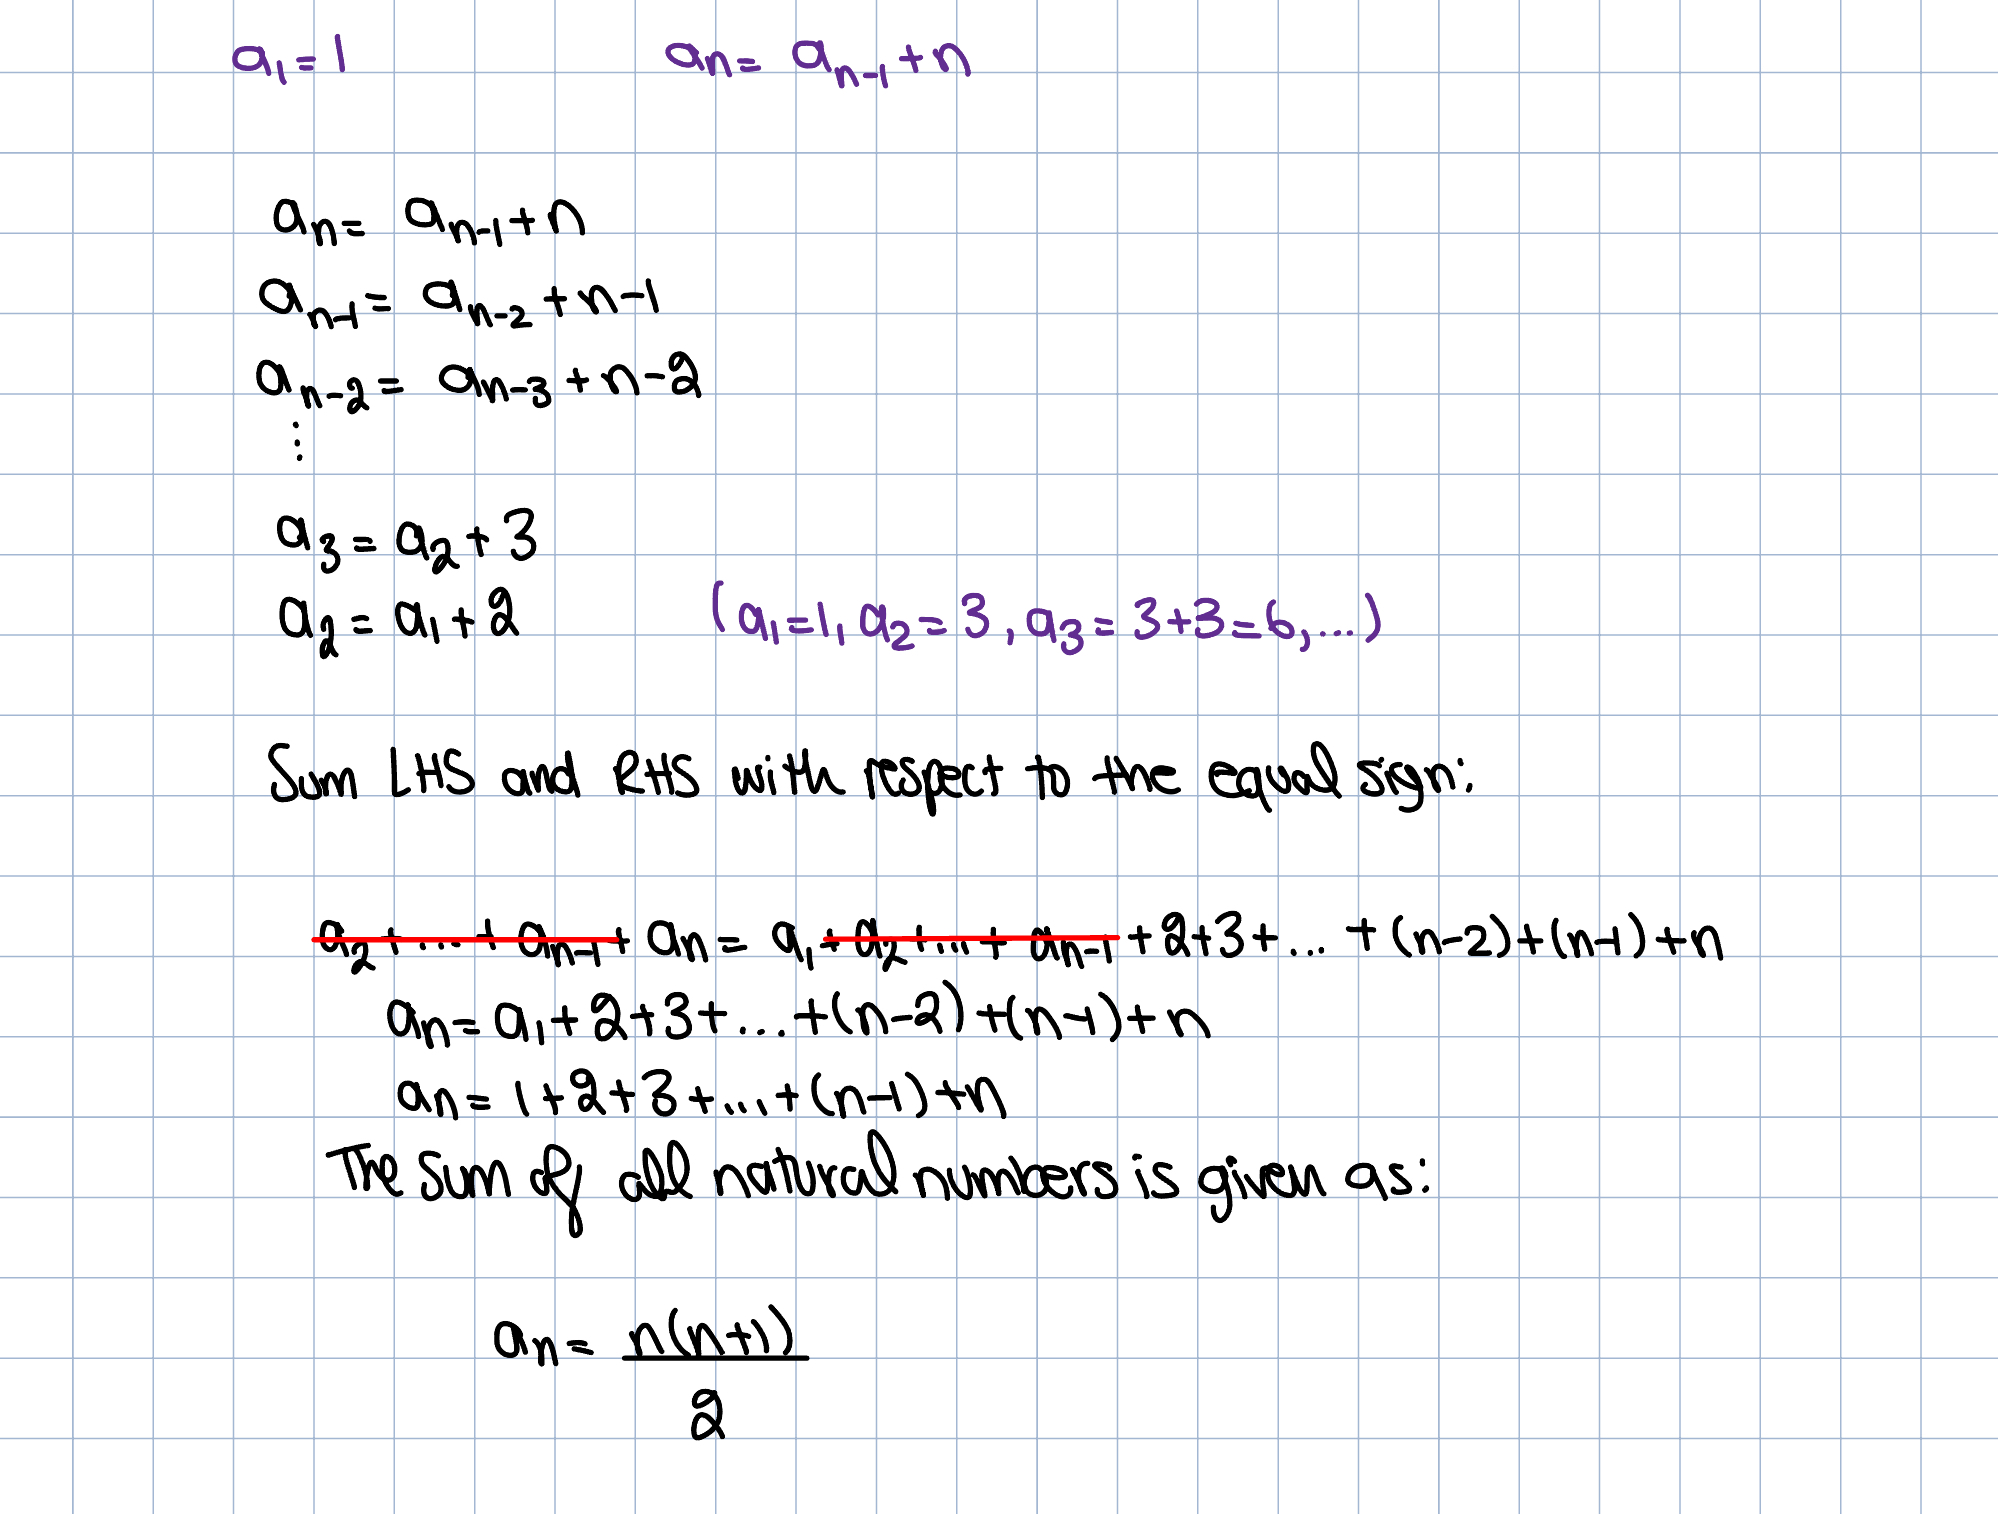 a₁=1 aₙ= aₙ₋₁+n
aₙ= aₙ₋₁+n
aₙ₋₁= aₙ₋₂+n-1
aₙ₋₂= aₙ₋₃+n-2
⋮
a₃=a₂+3
a₂=a₁+2 (a₁=1, a₂=3, a₃=3+3=6,...)
Sum LHS and RHS with respect to the equal sign:
a₂+...+aₙ₋₁+aₙ=a₁+a₂+...+aₙ₋₁+2+3+...+(n-2)+(n-1)+n
aₙ=a₁+2+3+...+(n-2)+(n-1)+n
aₙ=1+2+3+...+(n-1)+n
The sum of all natural numbers is given as:
aₙ= n(n+1)
2